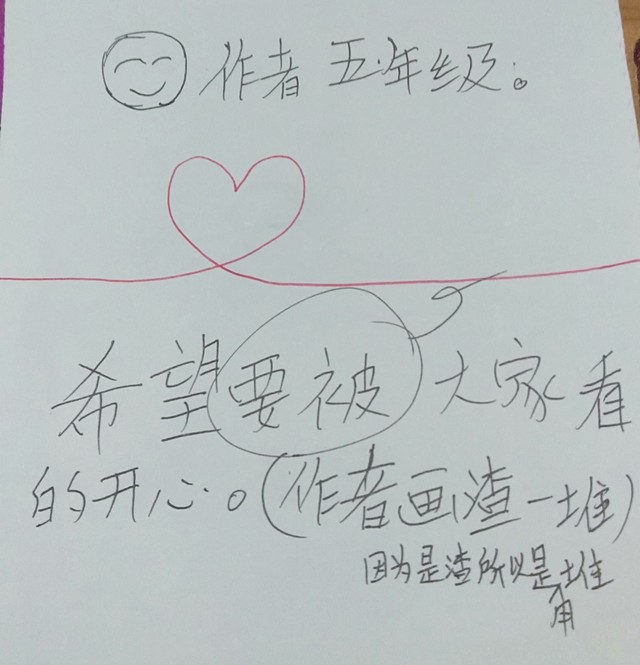 作者五年级。
希望要被大家看
的开心。(作者画渣一堆)
因为是渣所以是堆
用